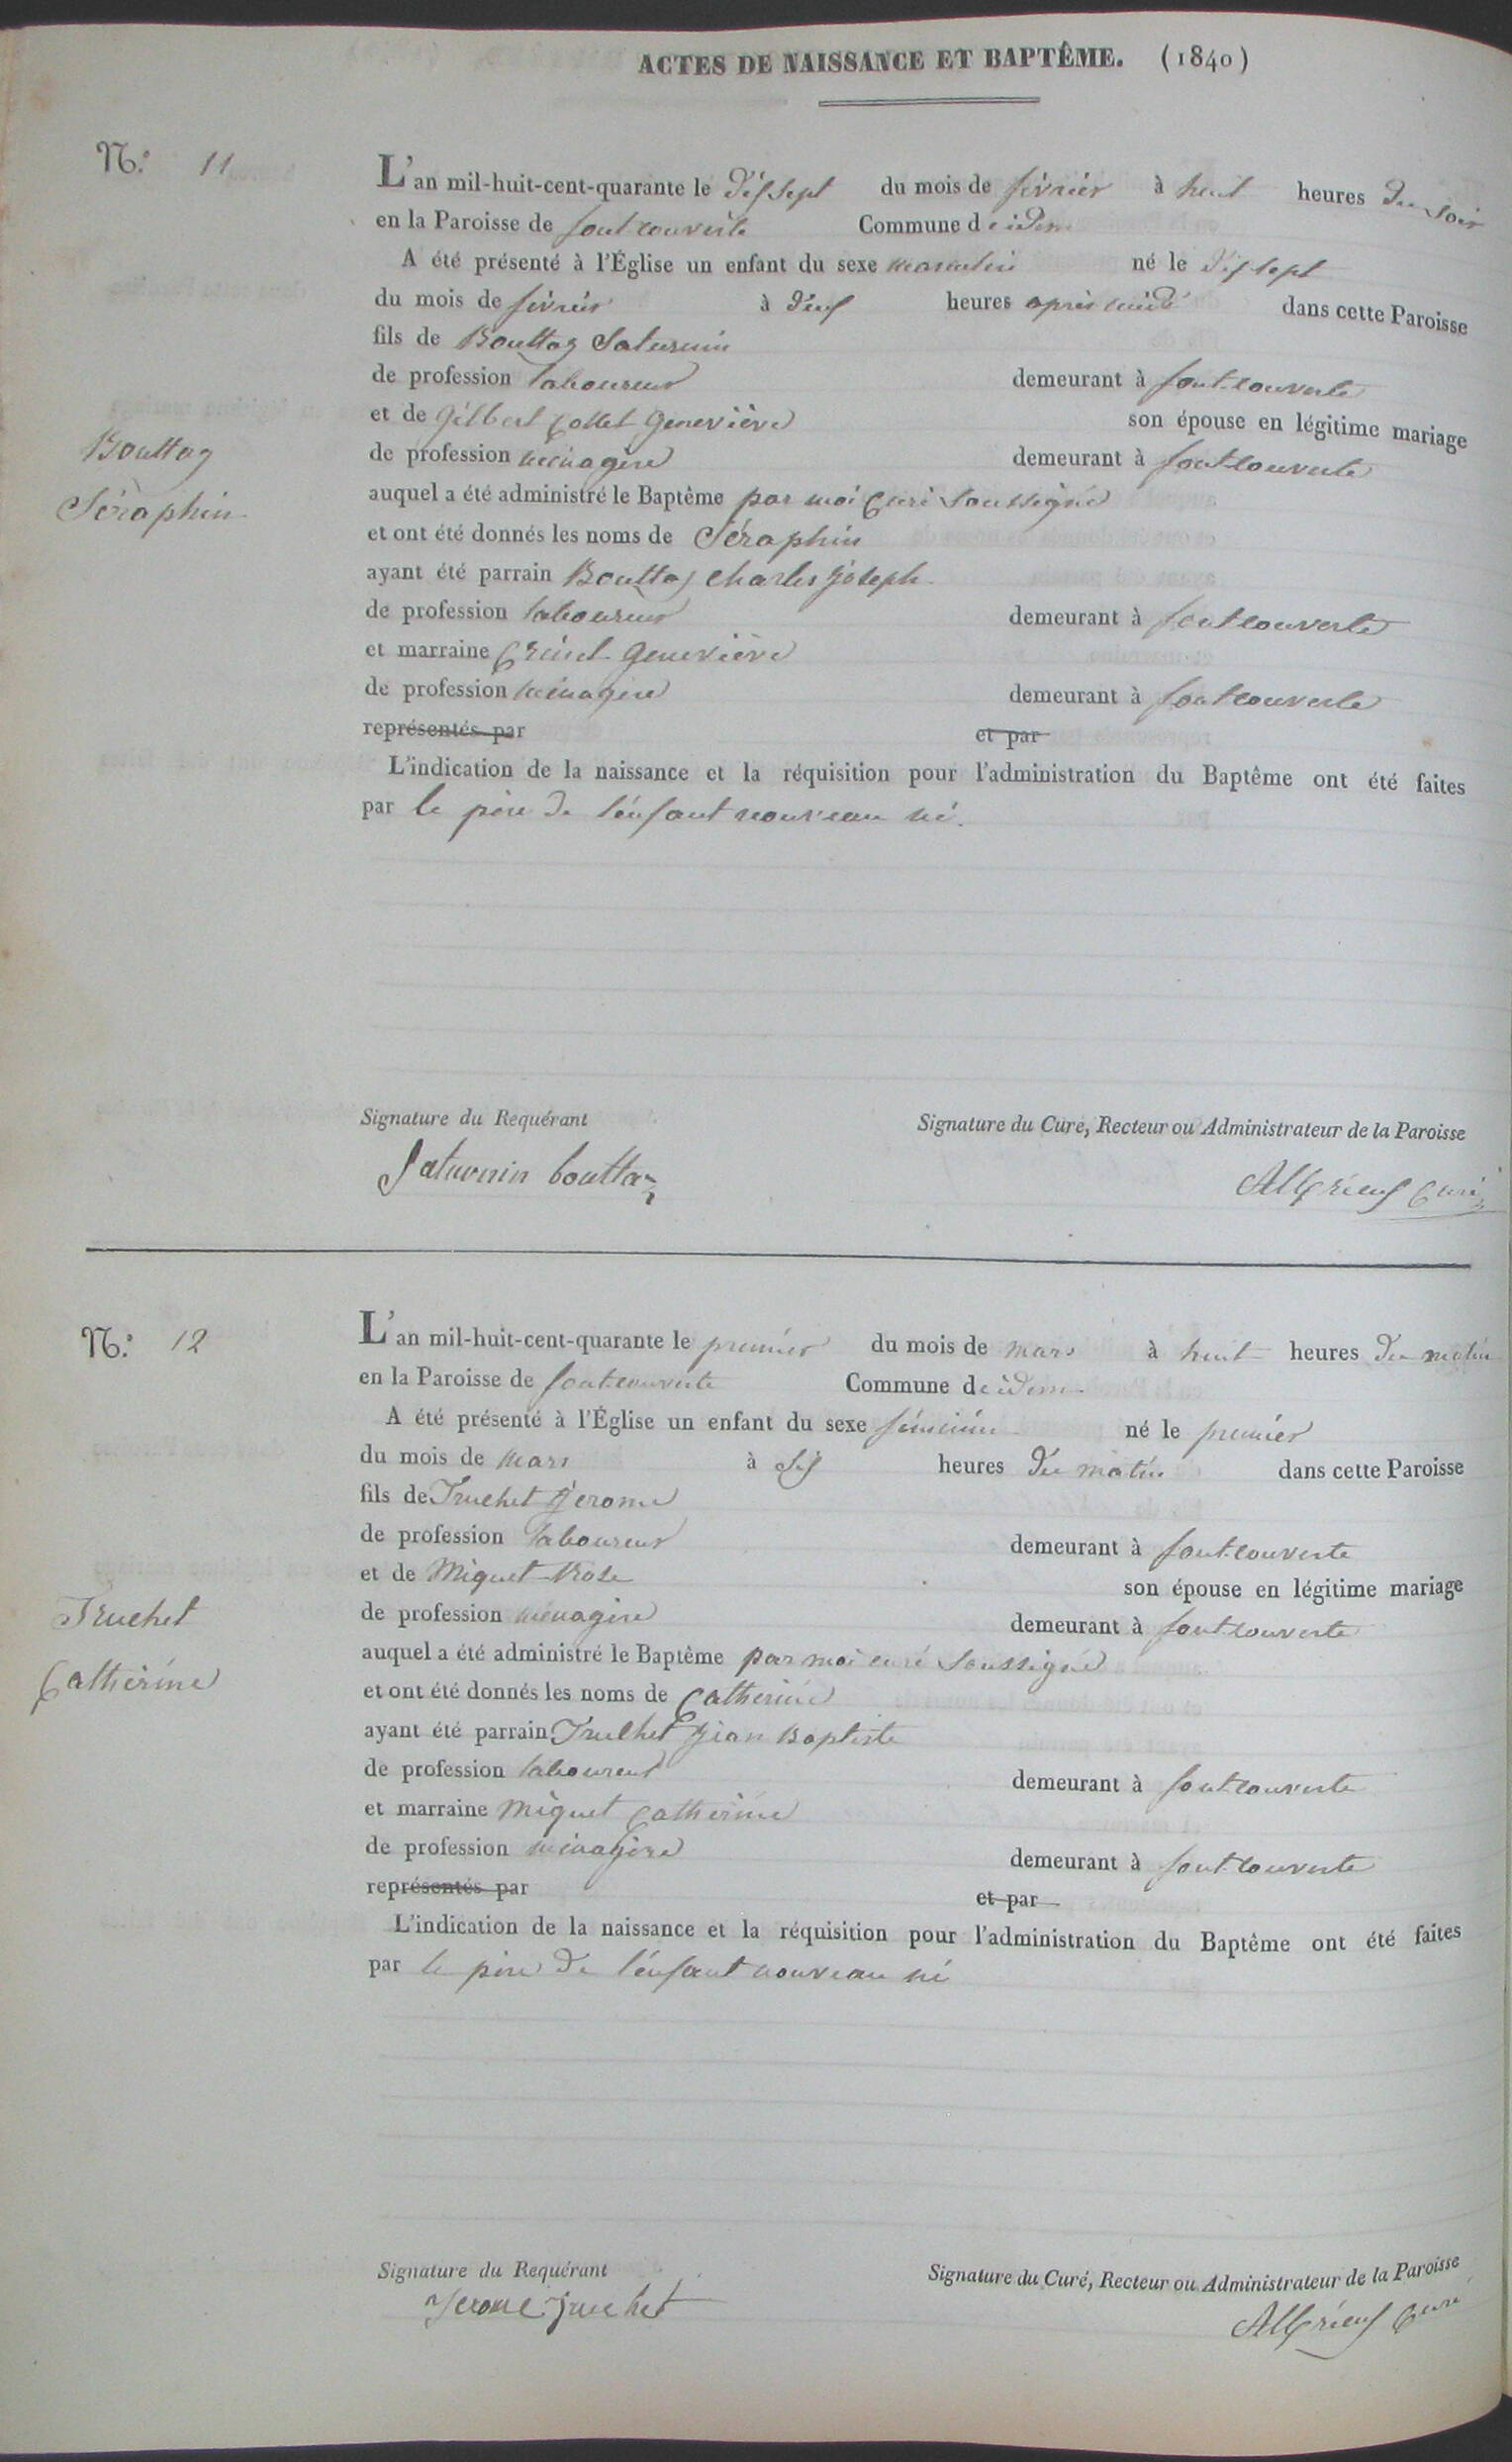 ACTES DE NAISSANCE ET BAPTÊME. (1840)
N.° 11
L'an mil-huit-cent-quarante le dixsept du mois de février à huit heures du soir
en la Paroisse de fontcouverte Commune de idem
A été présenté à l'Église un enfant du sexe masculin né le dixsept
du mois de février à deux heures après midi dans cette Paroisse
fils de Bouttaz Saturnin
de profession laboureur demeurant à fontcouverte
et de Gilbert Collet Geneviève son épouse en légitime mariage
de profession ménagère demeurant à fontcouverte
Bouttaz
Séraphin
auquel a été administré le Baptême par moi Curé Soussigné
et ont été donnés les noms de Séraphin
ayant été parrain Bouttaz Charles Joseph
de profession laboureur demeurant à fontcouverte
et marraine Geneviève
de profession ménagère demeurant à fontcouverte
représentés par et par
L'indication de la naissance et la réquisition pour l'administration du Baptême ont été faites
par le père de l'enfant nouveau né.
Signature du Requérant Signature du Curé, Recteur ou Administrateur de la Paroisse
Saturnin bouttaz Curé
N.° 12
L'an mil-huit-cent-quarante le premier du mois de mars à huit heures du matin
en la Paroisse de fontcouverte Commune de idem
A été présenté à l'Église un enfant du sexe féminin né le premier
du mois de mars à six heures du matin dans cette Paroisse
fils de Truchet Jerome
de profession laboureur demeurant à fontcouverte
et de Miquet Rose son épouse en légitime mariage
de profession ménagère demeurant à fontcouverte
Truchet
Catherine
auquel a été administré le Baptême par moi curé Soussigné
et ont été donnés les noms de Catherine
ayant été parrain Truchet Jean Baptiste
de profession laboureur demeurant à fontcouverte
et marraine Miquet Catherine
de profession ménagère demeurant à fontcouverte
représentés par et par
L'indication de la naissance et la réquisition pour l'administration du Baptême ont été faites
par le père de l'enfant nouveau né
Signature du Requérant Signature du Curé, Recteur ou Administrateur de la Paroisse
Jerome truchet Curé